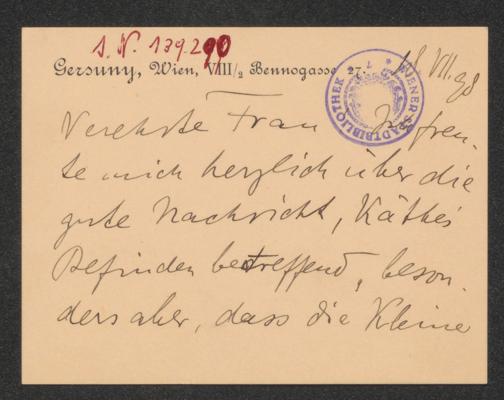 I. N. 139.290
Gersuny, Wien, VIII/2 Bennogasse 27.
VII. 98
WIENER STADTBIBLIOTHEK
Verehrte Frau Ich freu-
te mich herzlich über die
gute Nachricht, Käthes
Befinden betreffend, beson-
ders aber, dass die Kleine